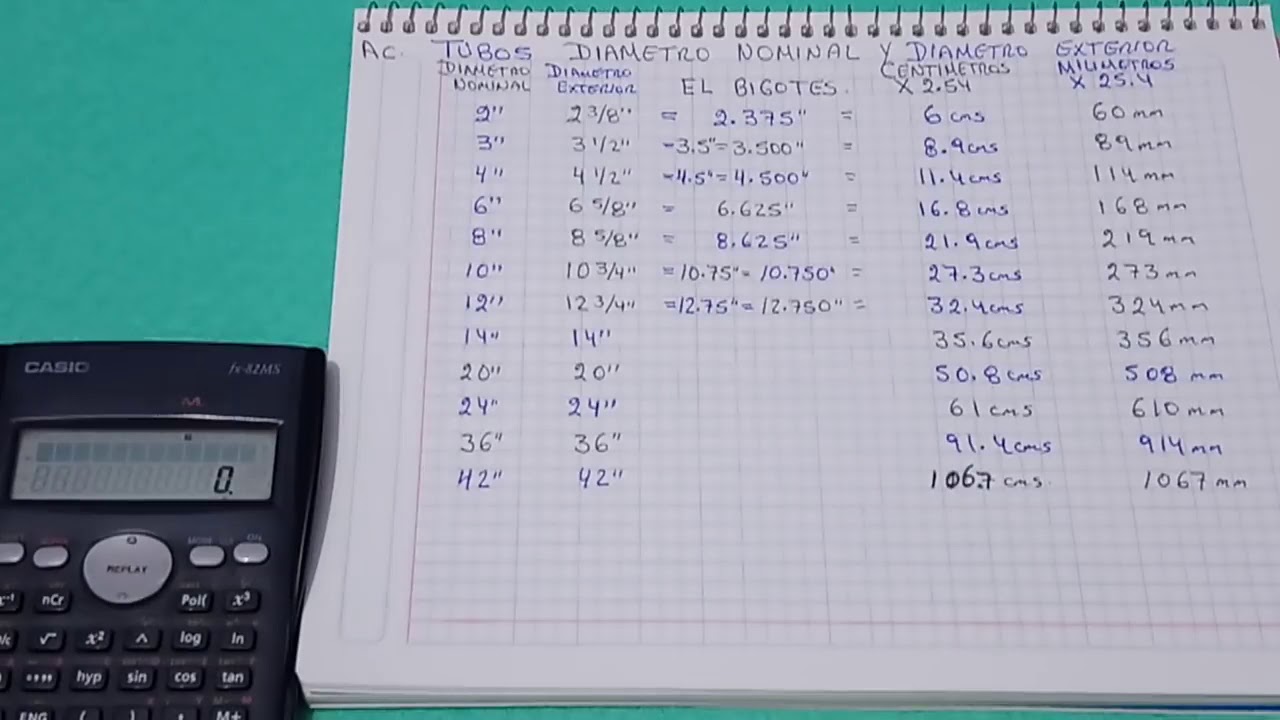 AC. TUBOS DIAMETRO NOMINAL Y DIAMETRO EXTERIOR
DIAMETRO NOMINAL DIAMETRO EXTERIOR EL BIGOTES. CENTIMETROS X 2.54 MILIMETROS X 25.4
2" 2 3/8" = 2.375" = 6 cms 60 mm
3" 3 1/2" =3.5"= 3.500" = 8.9cms 89 mm
4" 4 1/2" =4.5"= 4.500" = 11.4cms 114 mm
6" 6 5/8" = 6.625" = 16.8 cms 168 mm
8" 8 5/8" = 8.625" = 21.9 cms 219 mm
10" 10 3/4" =10.75"= 10.750" = 27.3cms 273 mm
12" 12 3/4" =12.75"= 12.750" = 32.4cms 324 mm
14" 14" 35.6cms 356 mm
20" 20" 50.8 cms 508 mm
24" 24" 61 cms 610 mm
36" 36" 91.4cms 914 mm
42" 42" 106.7 cms. 1067 mm
CASIO fx-82MS
M
0.
MODE ON
REPLAY
x⁻¹ nCr Pol( x³
√ x² ^ log ln
°,,, hyp sin cos tan
ENG ( ) , M+